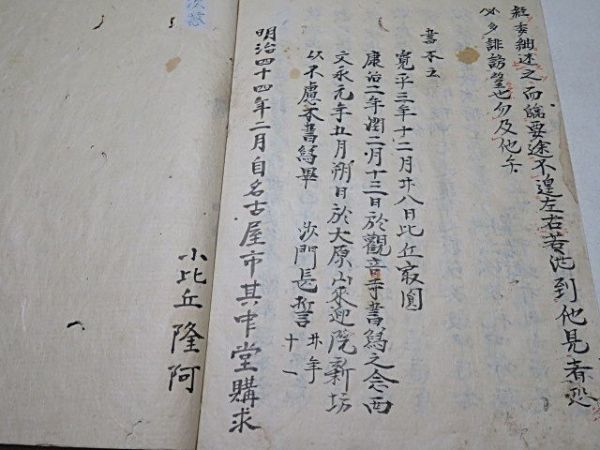 無委細述之而臨要途不遑左右若流到他見者恐
必多誹謗望也勿及他矣
書本云
寛平三年十二月廿八日比丘最圓
康治二年潤二月十三日於觀音寺書寫之念西
文永元年五月朔日於大原山来迎院新坊
以不慮本書寫畢 沙門長誓 廿一年
明治四十四年二月自名古屋市其中堂購求
小比丘隆阿